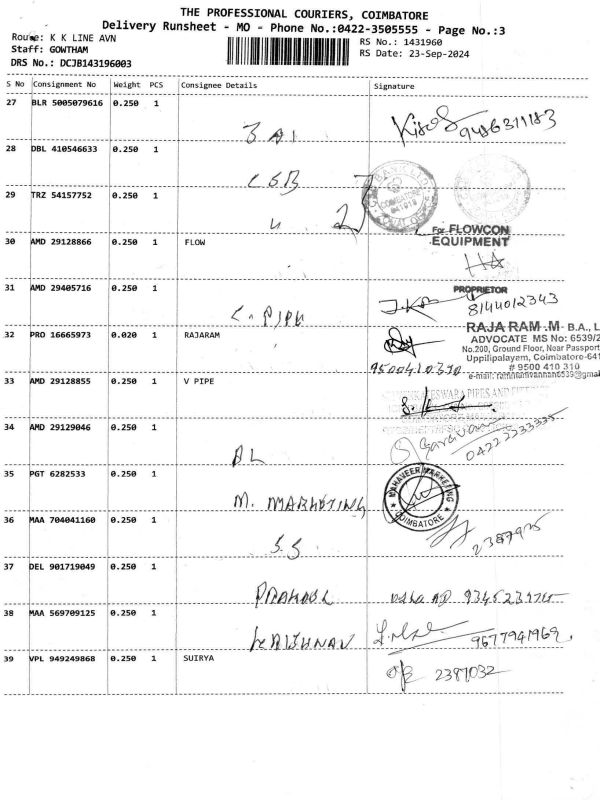 THE PROFESSIONAL COURIERS, COIMBATORE
Delivery Runsheet - MO - Phone No.:0422-3505555 - Page No.:3
Route: K K LINE AVN
Staff: GOWTHAM
DRS No.: DCJB143196003
RS No.: 1431960
RS Date: 23-Sep-2024
S No Consignment No Weight PCS Consignee Details Signature
27 BLR 5005079616 0.250 1
9486311183
28 DBL 410546633 0.250 1
CSB
29 TRZ 54157752 0.250 1
COIMBATORE
For FLOWCON
EQUIPMENT
30 AMD 29128866 0.250 1 FLOW
PROPRIETOR
31 AMD 29405716 0.250 1
8144012343
32 PRO 16665973 0.020 1 RAJARAM
RAJA RAM .M- B.A., L
ADVOCATE MS No: 6539/2
No.200, Ground Floor, Near Passport
Uppilipalayam, Coimbatore-641
# 9500 410 310
9500410310
33 AMD 29128855 0.250 1 V PIPE
34 AMD 29129046 0.250 1
AL
35 PGT 6282533 0.250 1
M. MARKETING
MAHAVEER MARKETING
COIMBATORE
36 MAA 704041160 0.250 1
S.S
37 DEL 901719049 0.250 1
38 MAA 569709125 0.250 1
KRISHNAN
9677941969
39 VPL 949249868 0.250 1 SUIRYA
2387032